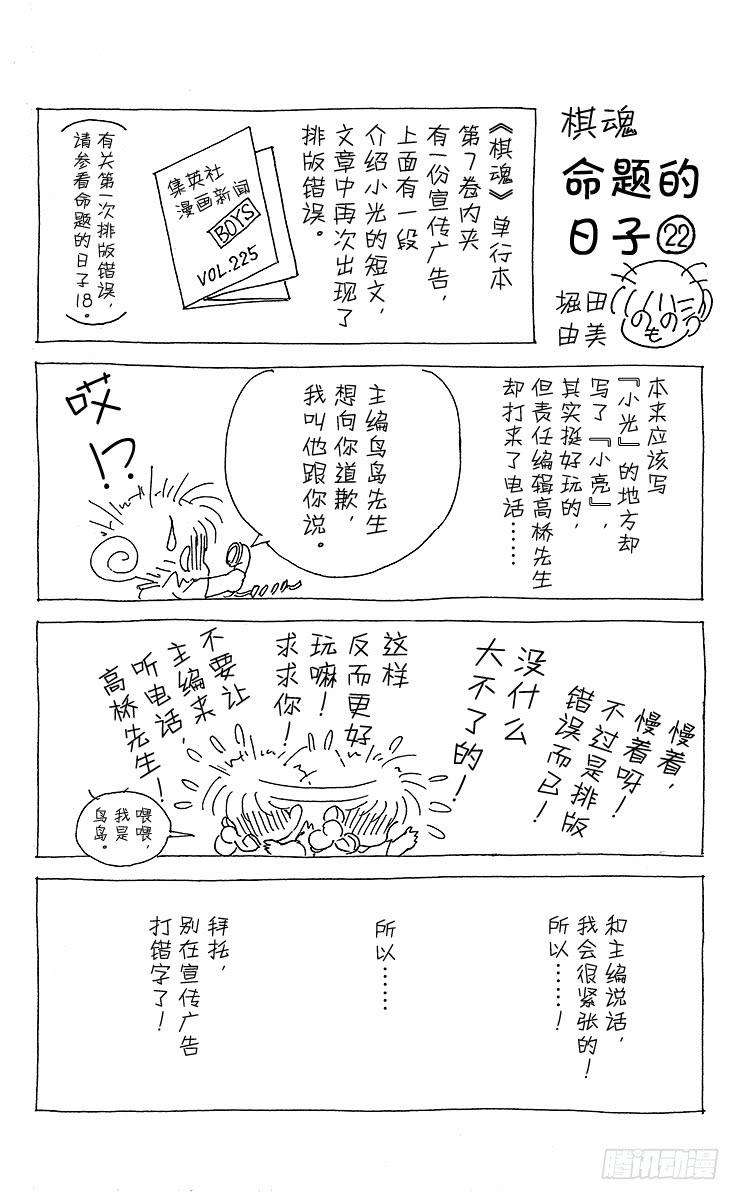 棋魂
命题的
日子㉒
堀田
由美
《棋魂》单行本
第7卷内夹
有一份宣传广告，
上面有一段
介绍小光的短文，
文章中再次出现了
排版错误。
集英社
漫画新闻
BOYS
VOL.225
（有关第一次排版错误，
请参看命题的日子18。）
本来应该写
『小光』的地方却
写了『小亮』，
其实挺好玩的，
但责任编辑高桥先生
却打来了电话……
主编鸟岛先生
想向你道歉，
我叫他跟你说。
哎!?
慢着，
慢着呀！
不过是排版
错误而已！
没什么
大不了的！
这样
反而更好
玩嘛！
求求你！
不要让
主编来
听电话，
高桥先生！
喂喂，
我是
鸟岛。
和主编说话，
我会很紧张的！
所以……！
所以……
拜托，
别在宣传广告
打错字了！
腾讯动漫